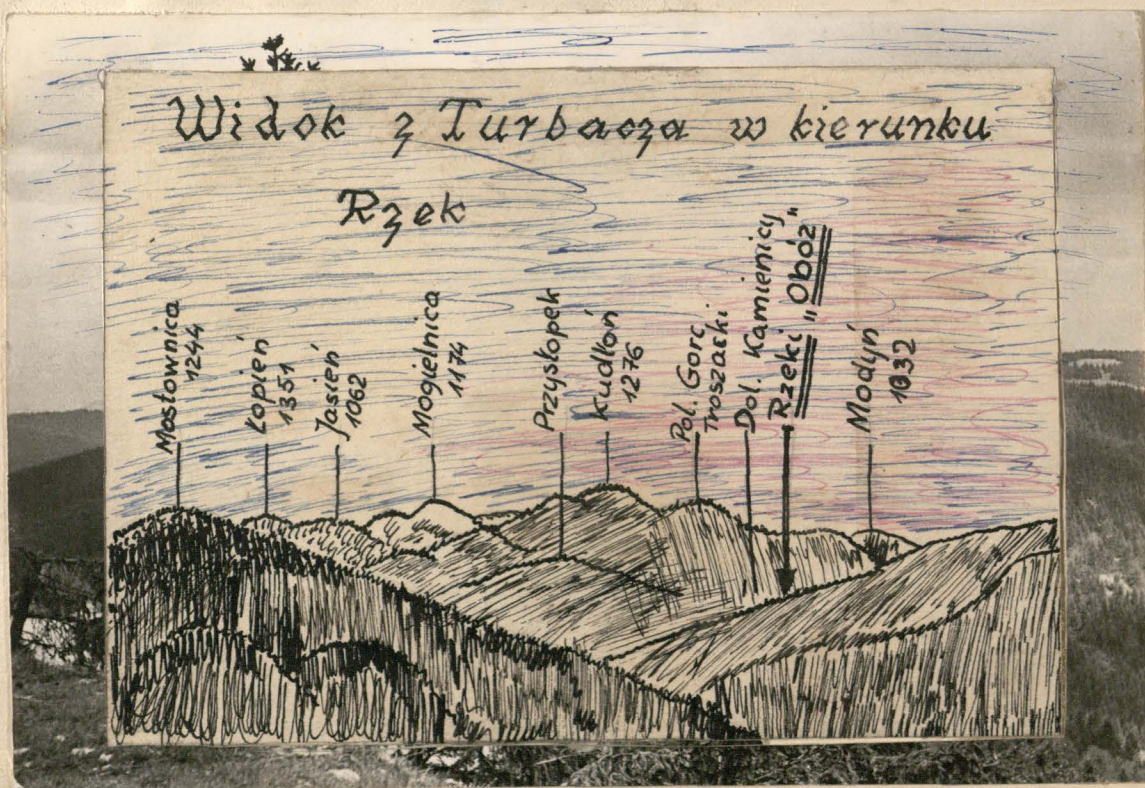 Widok z Turbacza w kierunku
Rzek
Mostownica
1244
Łopień
1351
Jasień
1062
Mogielnica
1174
Przysłopek
Kudłoń
1276
Pol. Gorc
Troszacki
Dol. Kamienicy
Rzeki „Obóz"
Modyń
1032